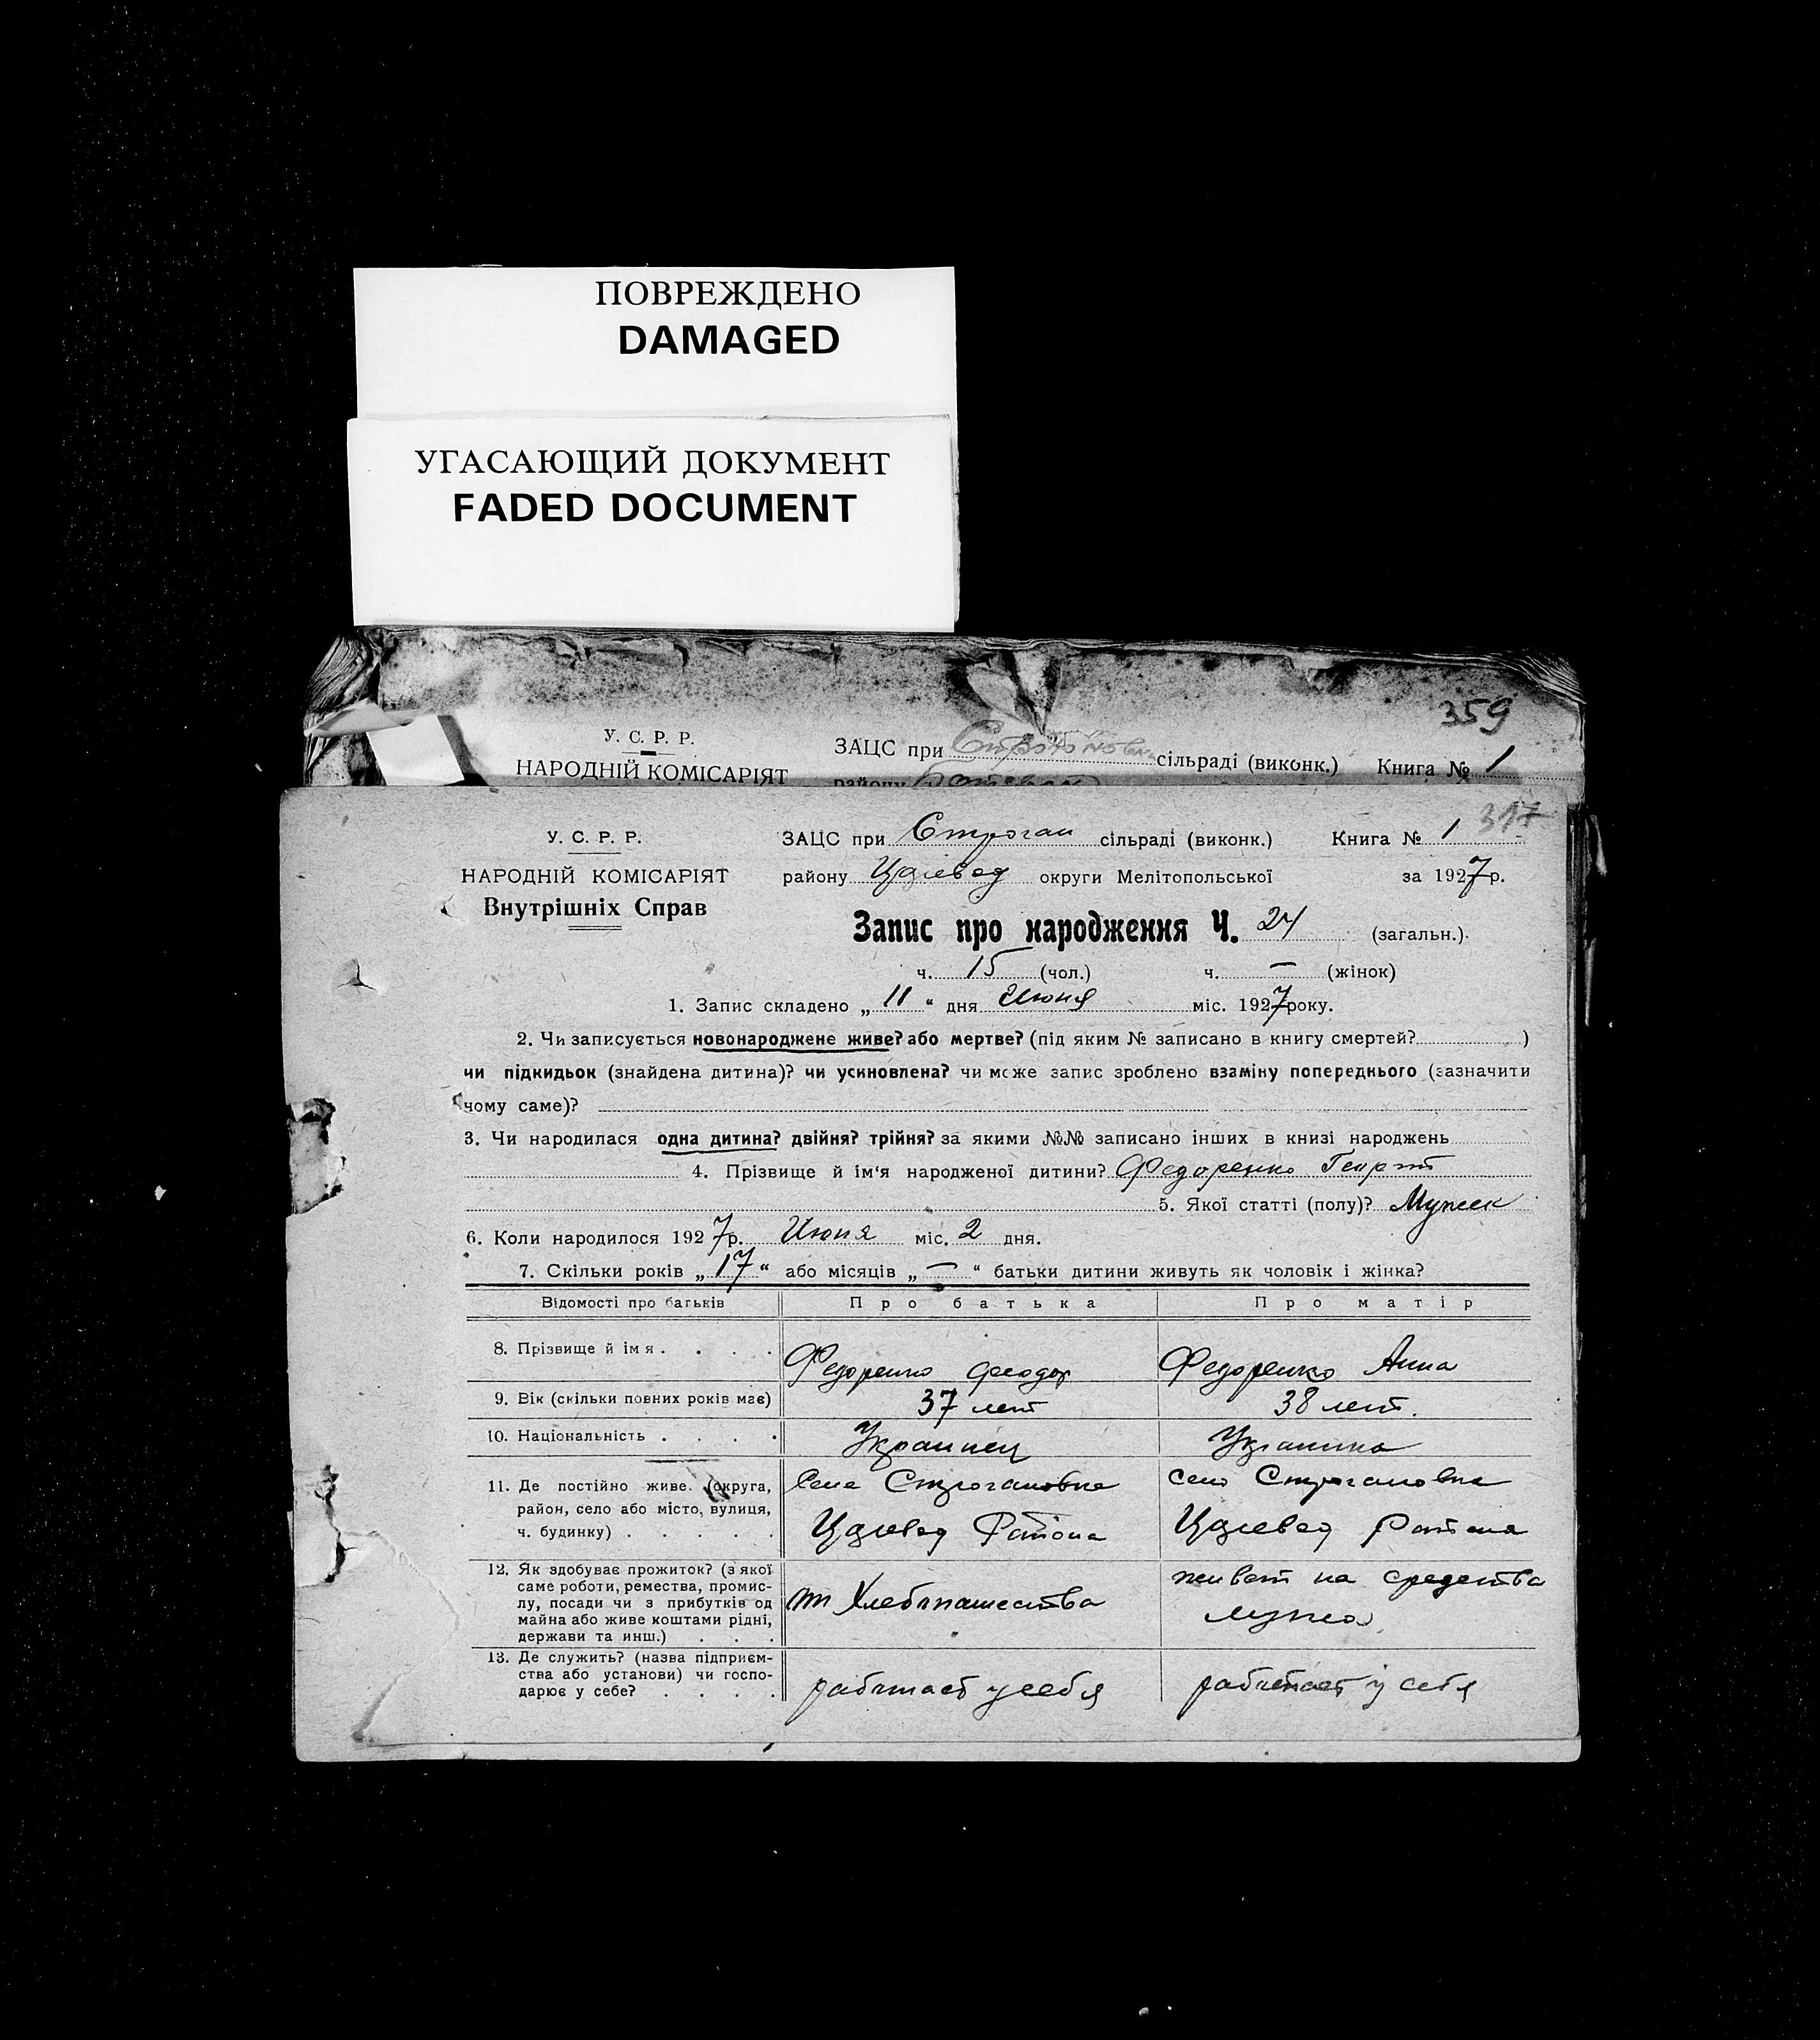 ПОВРЕЖДЕНО
DAMAGED
УГАСАЮЩИЙ ДОКУМЕНТ
FADED DOCUMENT
359
У. С. Р. Р.
ЗАЦС при сільраді (виконк.) Книга № 1
НАРОДНІЙ КОМІСАРІЯТ
району
317
У. С. Р. Р.
ЗАЦС при Строган сільраді (виконк.) Книга № 1
НАРОДНІЙ КОМІСАРІЯТ
району округи Мелітопольської за 1927 р.
Внутрішніх Справ
Запис про народження Ч. 24 (загальн.).
ч. 15 (чол.) ч. — (жінок)
1. Запис складено „ 11 “ дня Июня міс. 1927 року.
2. Чи записується новонароджене живе? або мертве? (під яким № записано в книгу смертей? )
чи підкидьок (знайдена дитина)? чи усиновлена? чи може запис зроблено взаміну попереднього (зазначити
чому саме)?
3. Чи народилася одна дитина? двійня? трійня? за якими №№ записано інших в книзі народжень
4. Прізвище й ім'я народженої дитини? Федоренко
5. Якої статті (полу)? Мужск
6. Коли народилося 1927 р. Июня міс. 2 дня.
7. Скільки років „ 17 “ або місяців „ — “ батьки дитини живуть як чоловік і жінка?
Відомості про батьків Про батька Про матір
8. Прізвище й імя . . . . Федоренко Феодор Федоренко Анна
9. Вік (скільки повних років має) 37 лет 38 лет.
10. Національність . . . . Украинец Украинка
11. Де постійно живе. (округа, район, село або місто, вулиця, ч. будинку) . . . . .
Села Строгановка
Района
село Строгановка
Района
12. Як здобуває прожиток? (з якої
саме роботи, ремества, промис-
лу, посади чи з прибутків од
майна або живе коштами рідні,
держави та инш.) . . .
от Хлебопашества
живет на средства
мужа
13. Де служить? (назва підприєм-
ства або установи) чи госпо-
дарює у себе? . . . .
работает у себя работает у себя